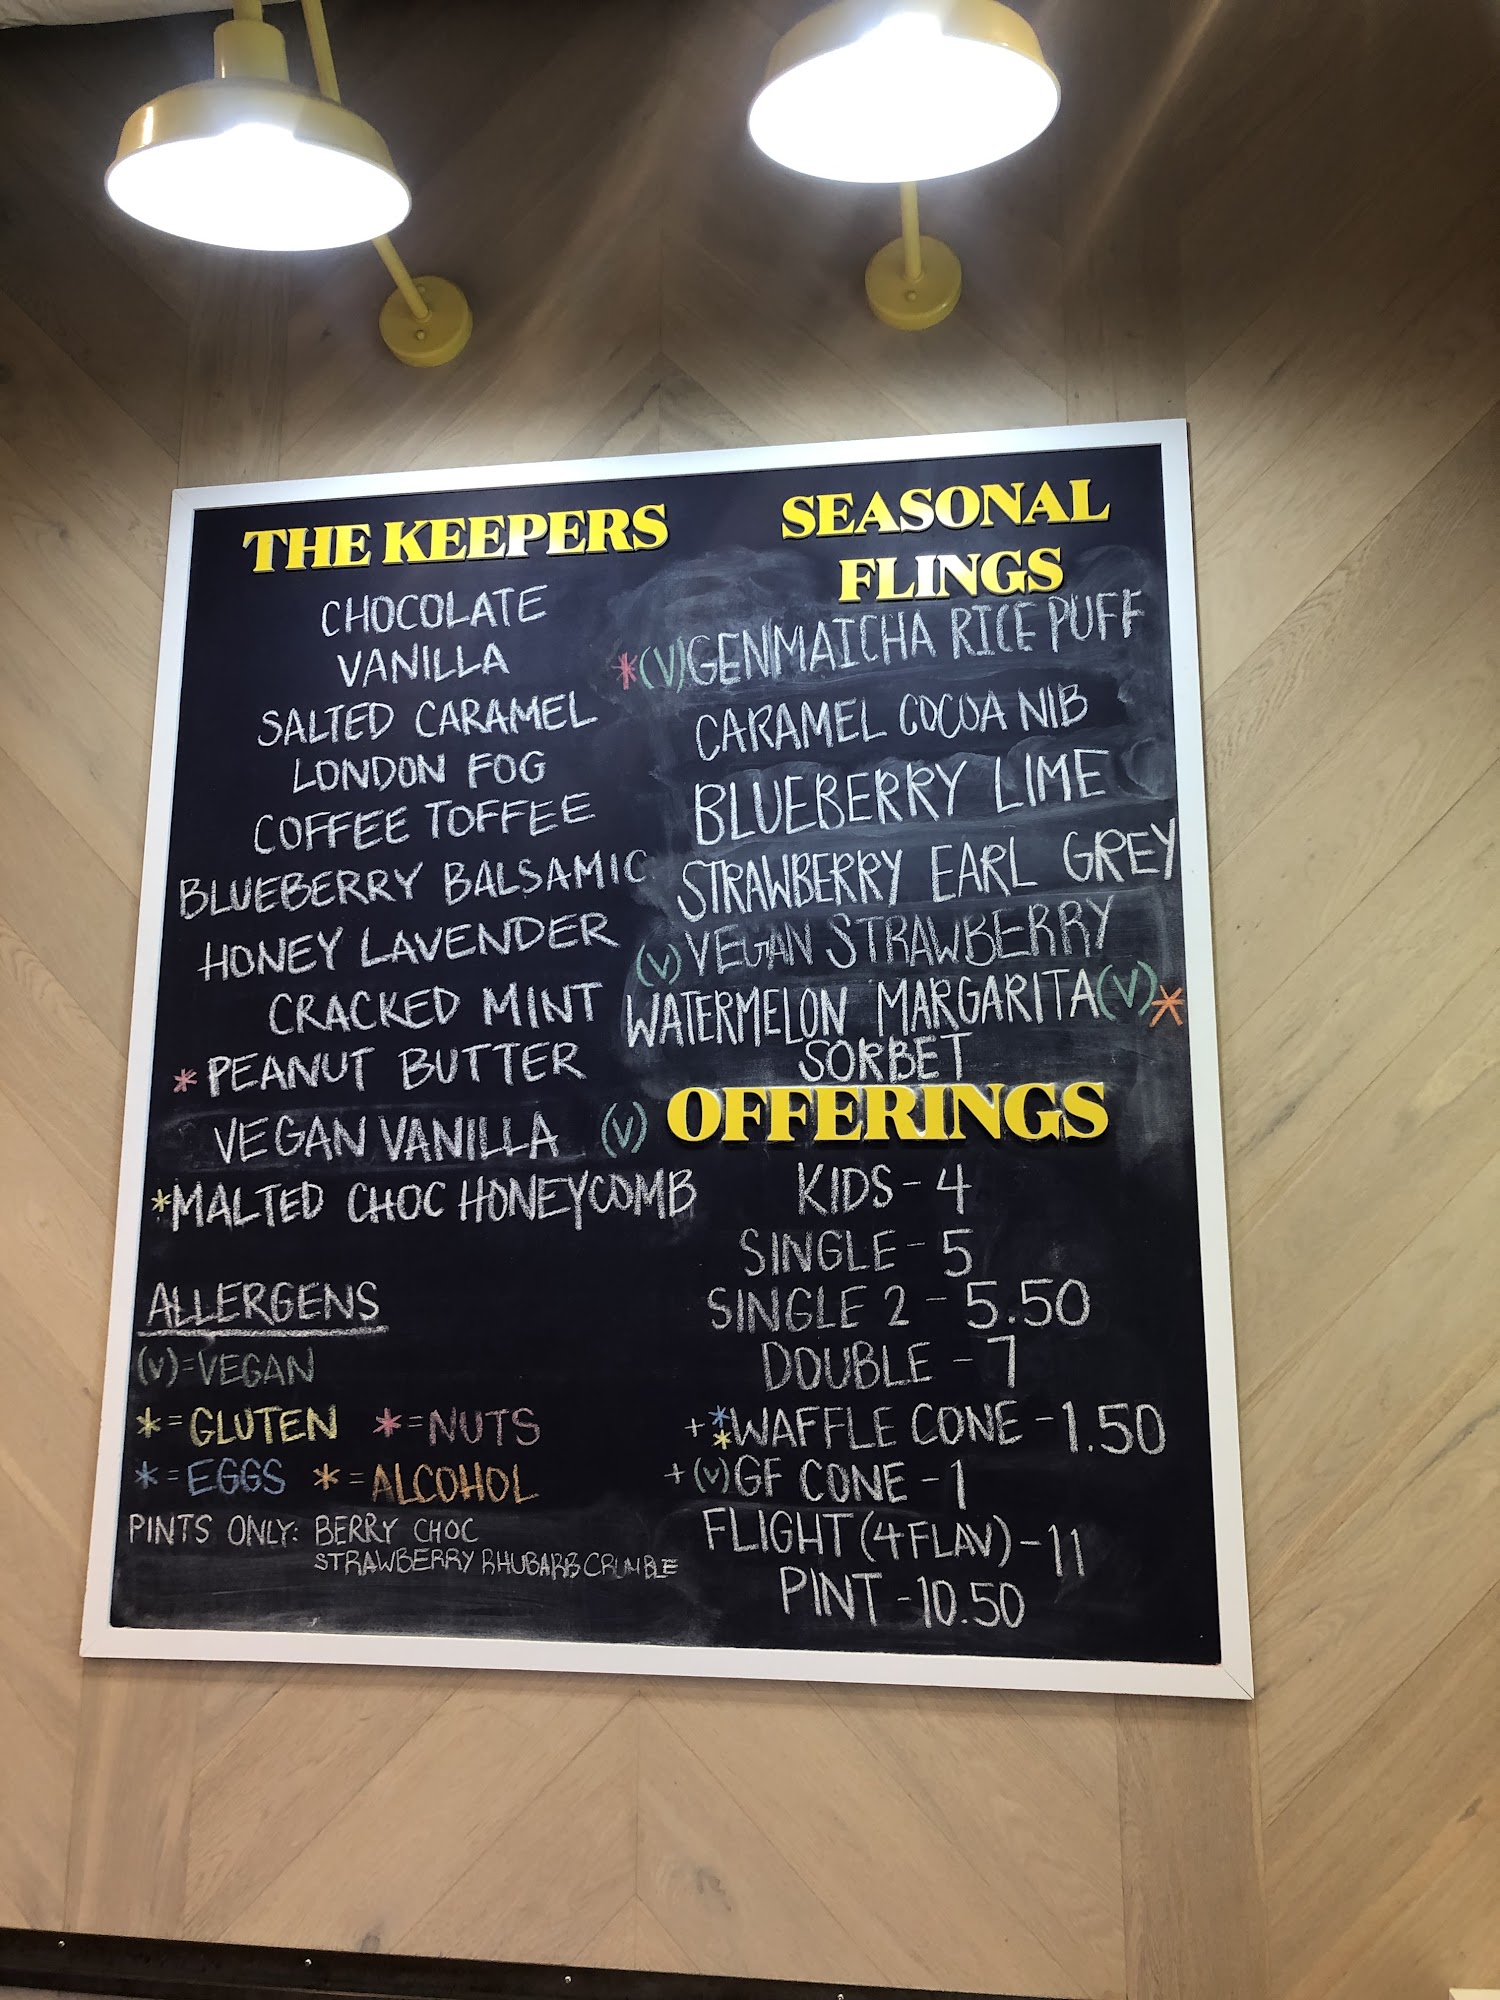 THE KEEPERS
CHOCOLATE
VANILLA
SALTED CARAMEL
LONDON FOG
COFFEE TOFFEE
BLUEBERRY BALSAMIC
HONEY LAVENDER
CRACKED MINT
*PEANUT BUTTER
VEGAN VANILLA (V)
*MALTED CHOC HONEYCOMB
ALLERGENS
(V)=VEGAN
*=GLUTEN *=NUTS
*=EGGS *=ALCOHOL
PINTS ONLY: BERRY CHOC
STRAWBERRY RHUBARB CRUMBLE
SEASONAL
FLINGS
*(V)GENMAICHA RICE PUFF
CARAMEL COCOA NIB
BLUEBERRY LIME
STRAWBERRY EARL GREY
(V)VEGAN STRAWBERRY
WATERMELON MARGARITA(V)*
SORBET
OFFERINGS
KIDS - 4
SINGLE - 5
SINGLE 2 - 5.50
DOUBLE - 7
+**WAFFLE CONE - 1.50
+(V)GF CONE - 1
FLIGHT (4 FLAV) - 11
PINT - 10.50